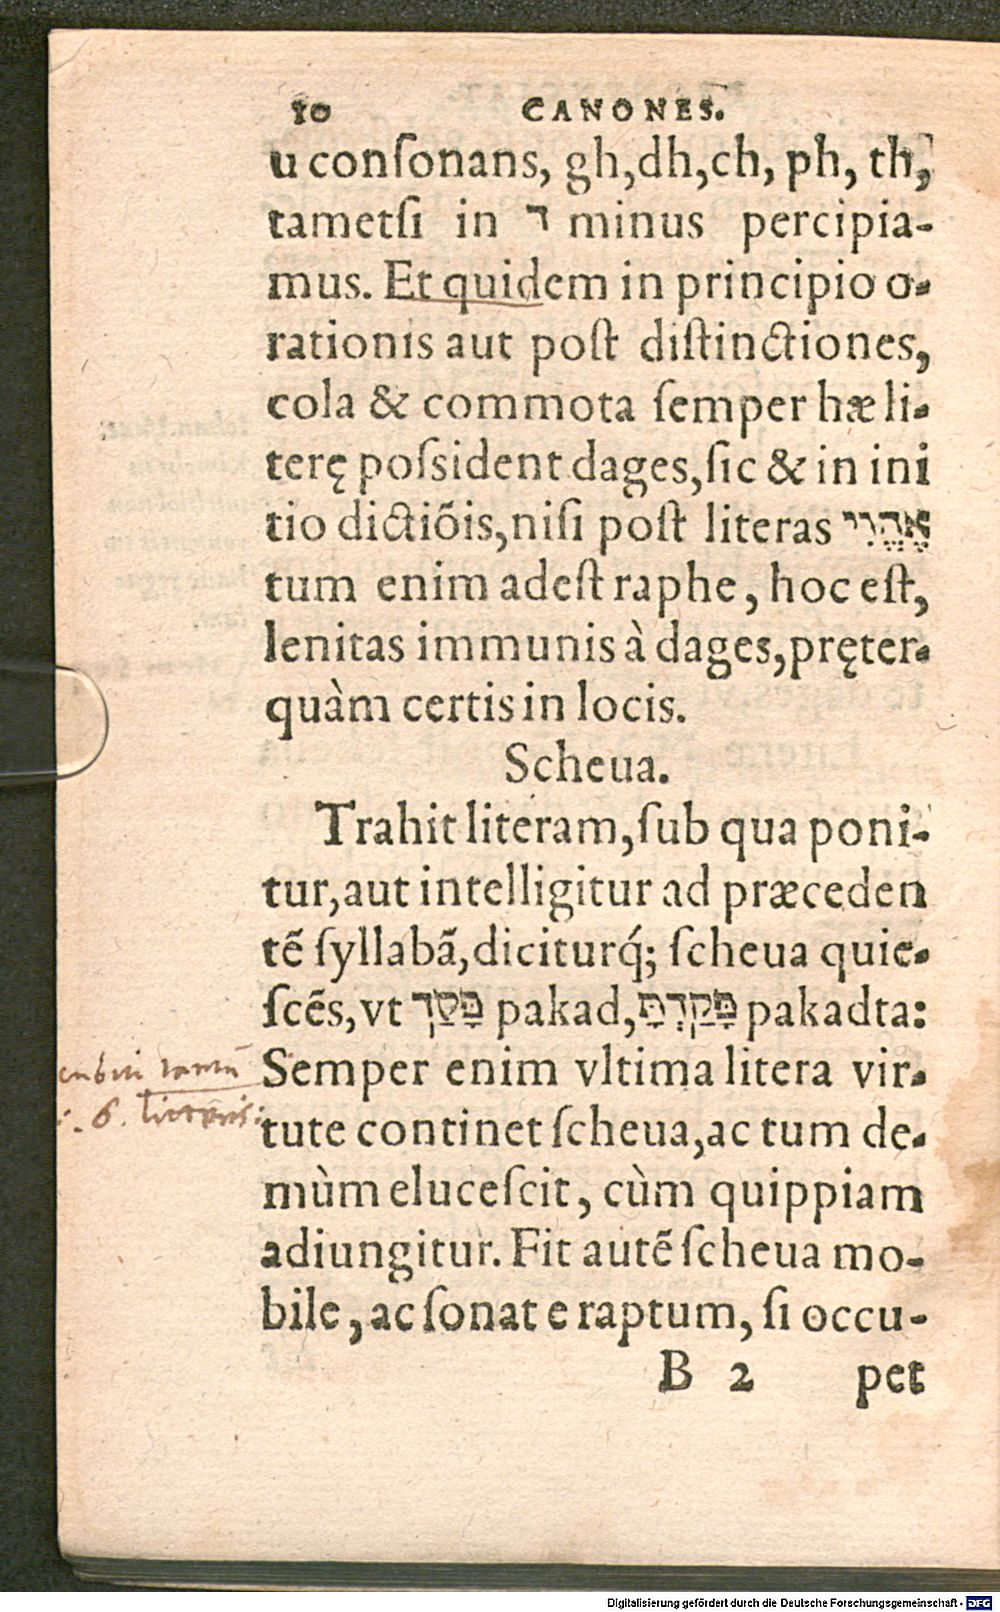 10 CANONES.
u conſonans, gh,dh,ch, ph, th,
tametſi in ד minus percipia-
mus. Et quidem in principio o-
rationis aut poſt diſtinctiones,
cola & commota ſemper hæ li-
terę poſsident dages,ſic & in ini
tio dictiõis,niſi poſt literas אֱהֱוִי
tum enim adeſt raphe, hoc eſt,
lenitas immunis à dages,pręter-
quàm certis in locis.
Scheua.
Trahit literam,ſub qua poni-
tur,aut intelligitur ad præceden
tẽ ſyllabã,diciturq́; ſcheua quie-
ſcẽs,vt פָּקַד pakad,פָּקַדְתָּ pakadta:
Semper enim vltima litera vir-
tute continet ſcheua,ac tum de-
mùm eluceſcit, cùm quippiam
adiungitur. Fit autẽ ſcheua mo-
bile, ac ſonat e raptum, ſi occu-
B 2 pet
6. litteris
Digitalisierung gefördert durch die Deutsche Forschungsgemeinschaft - DFG